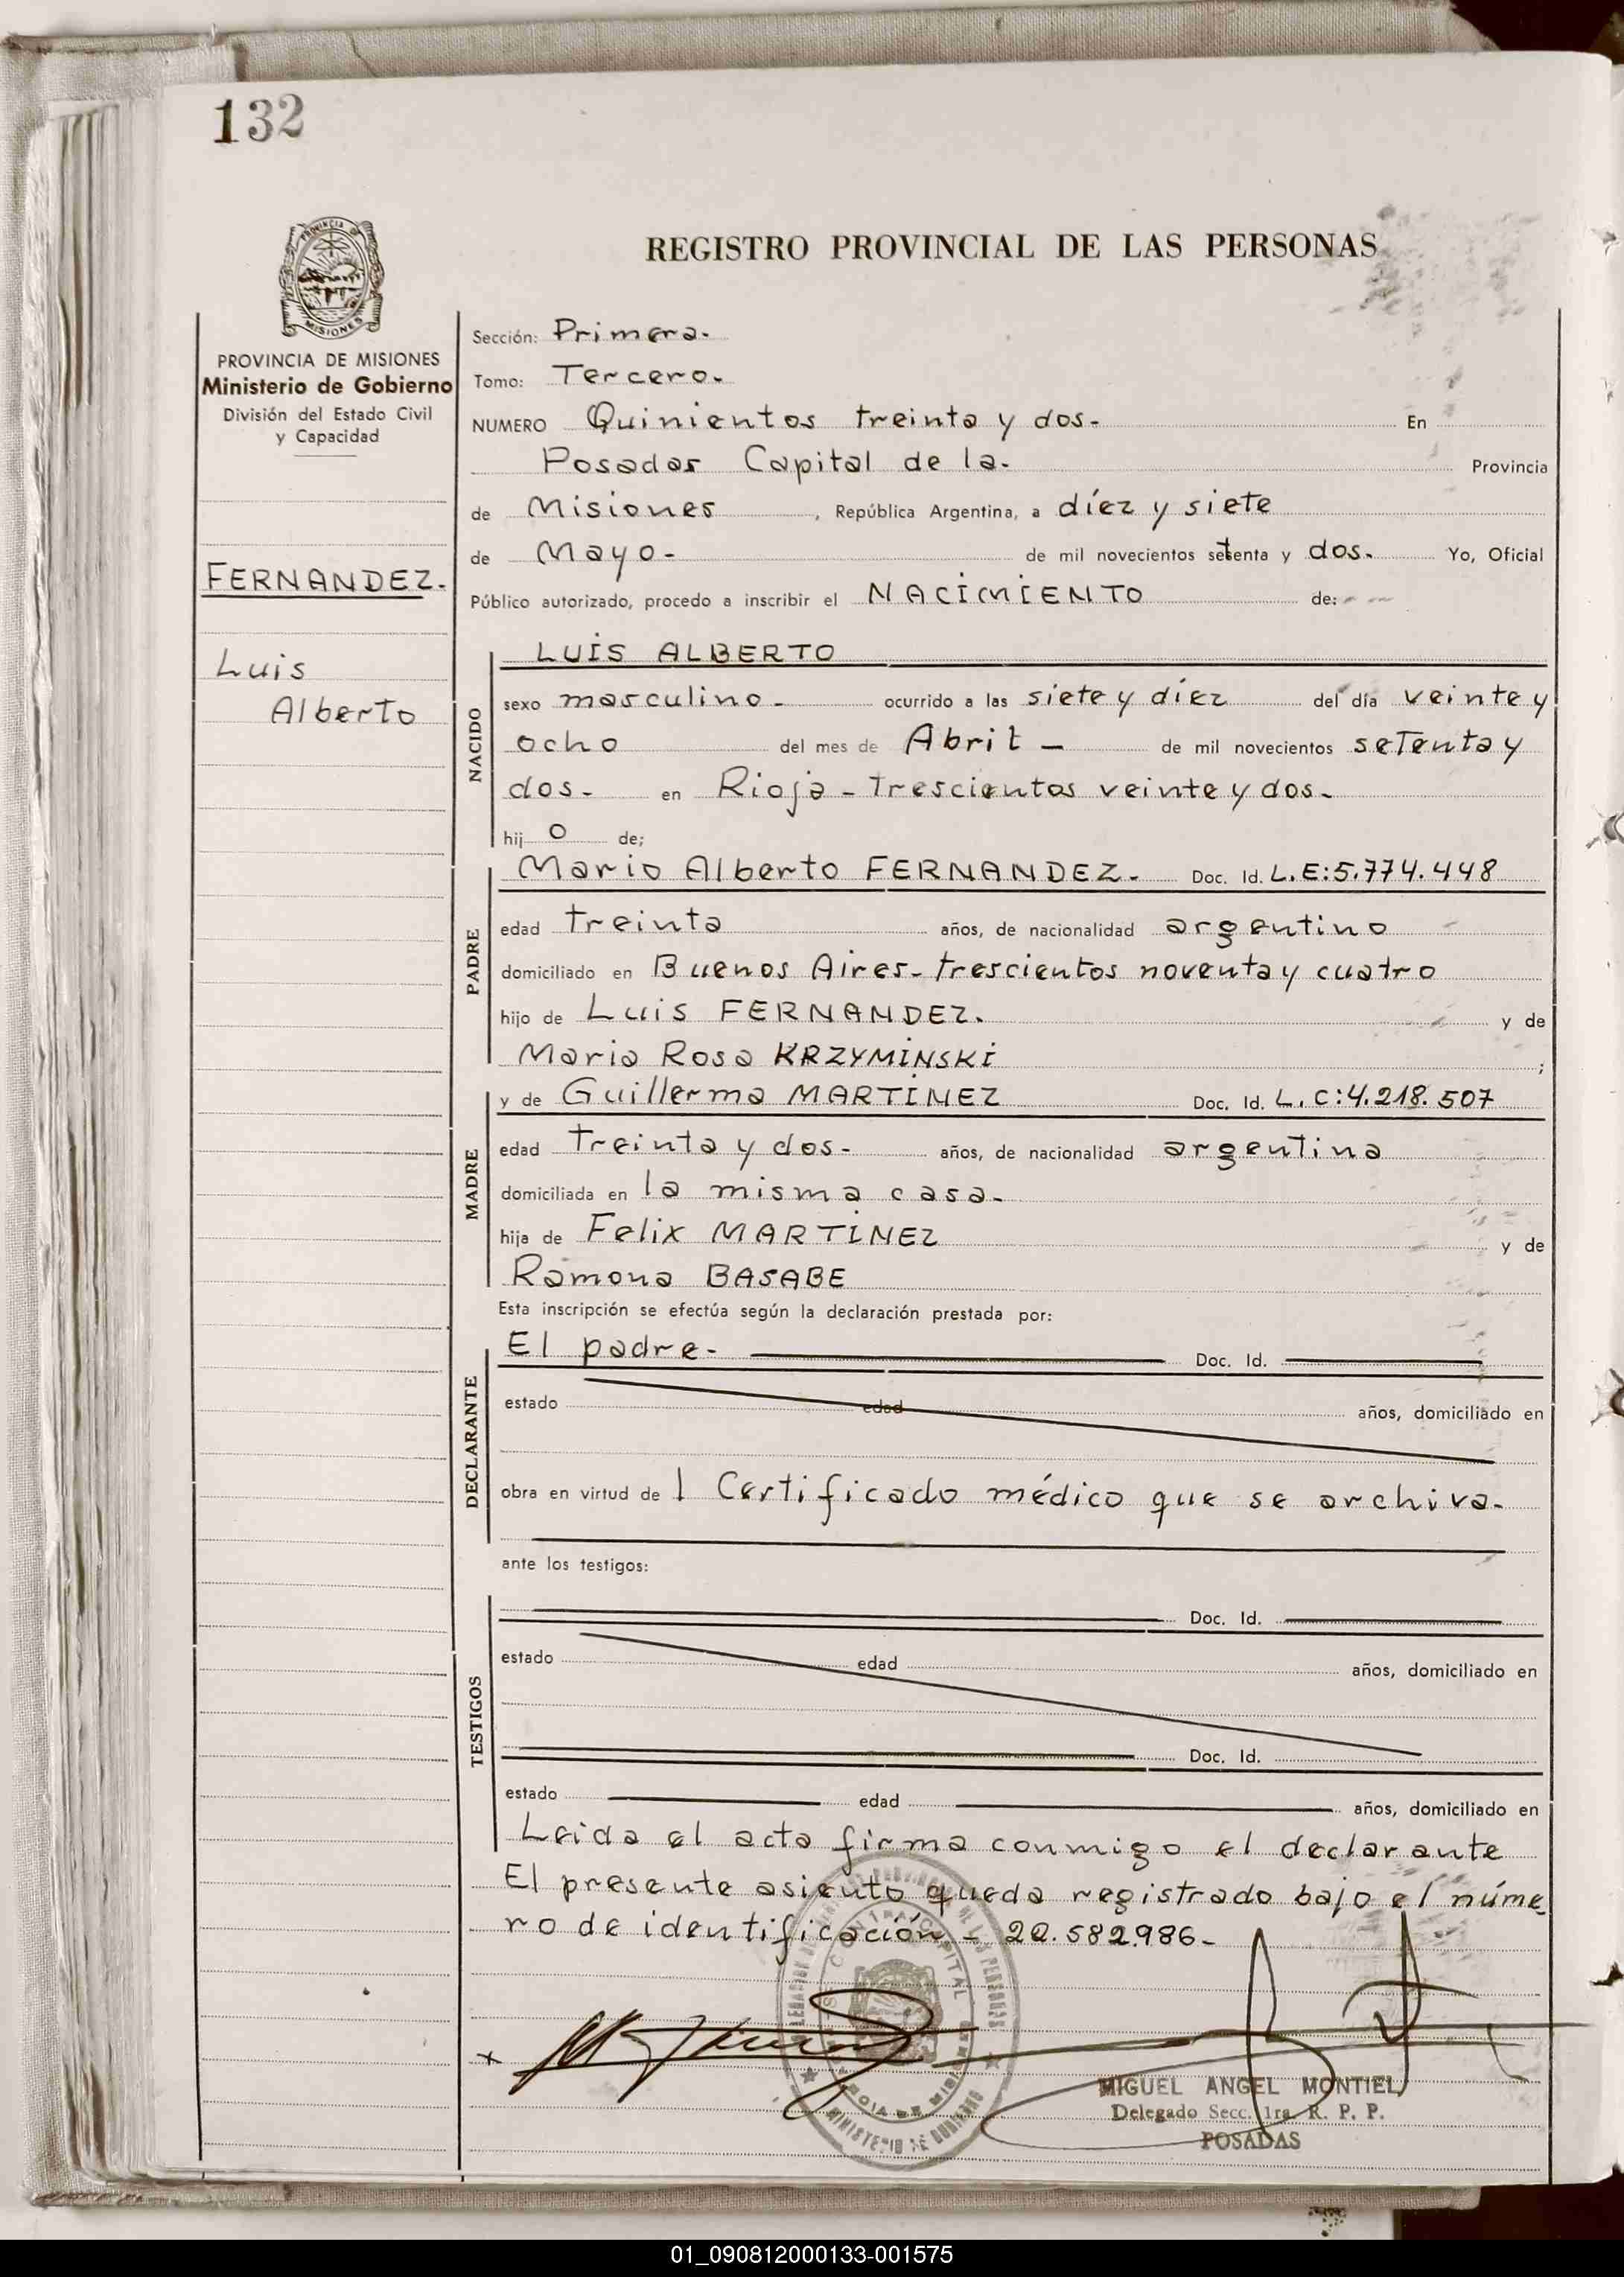 132
PROVINCIA DE
MISIONES
REGISTRO PROVINCIAL DE LAS PERSONAS
PROVINCIA DE MISIONES
Ministerio de Gobierno
División del Estado Civil
y Capacidad
FERNANDEZ.
Luis
Alberto
Sección: Primera.
Tomo: Tercero.
NUMERO Quinientos treinta y dos- En
Posadas Capital de la. Provincia
de Misiones, República Argentina, a díez y siete
de Mayo- de mil novecientos setenta y dos. Yo, Oficial
Público autorizado, procedo a inscribir el NACIMIENTO de:
NACIDO
LUIS ALBERTO
sexo masculino- ocurrido a las siete y díez del día veinte y
ocho del mes de Abril - de mil novecientos setenta y
dos- en Rioja - trescientos veinte y dos-
hij o de;
PADRE
Mario Alberto FERNANDEZ. Doc. Id. L.E:5.774.448
edad treinta años, de nacionalidad argentino
domiciliado en Buenos Aires- trescientos noventa y cuatro
hijo de Luis FERNANDEZ. y de
Maria Rosa KRZYMINSKI ;
MADRE
y de Guillerma MARTINEZ Doc. Id. L.C:4.218.507
edad treinta y dos- años, de nacionalidad argentina
domiciliada en la misma casa-
hija de Felix MARTINEZ y de
Ramona BASABE
Esta inscripción se efectúa según la declaración prestada por:
DECLARANTE
El padre- Doc. Id.
estado edad años, domiciliado en
obra en virtud de 1 Certificado médico que se archiva-
ante los testigos:
TESTIGOS
Doc. Id.
estado edad años, domiciliado en
Doc. Id.
estado edad años, domiciliado en
Leida el acta firma conmigo el declarante
El presente asiento queda registrado bajo el núme
ro de identificación - 22.582.986-
MINISTERIO DE GOBIERNO
MIGUEL ANGEL MONTIEL
Delegado Secc. 1ra. R. P. P.
POSADAS
01_090812000133-001575